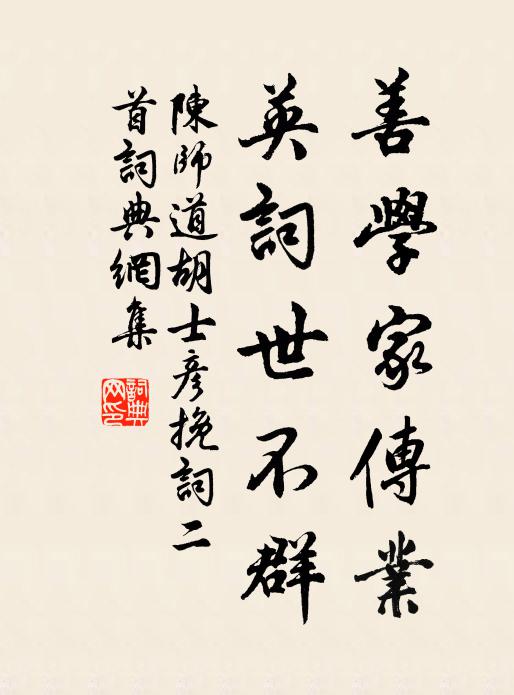 善學家傳業
英詞世不群
陳師道胡士彥挽詞二
首詞典網集
詞典網印